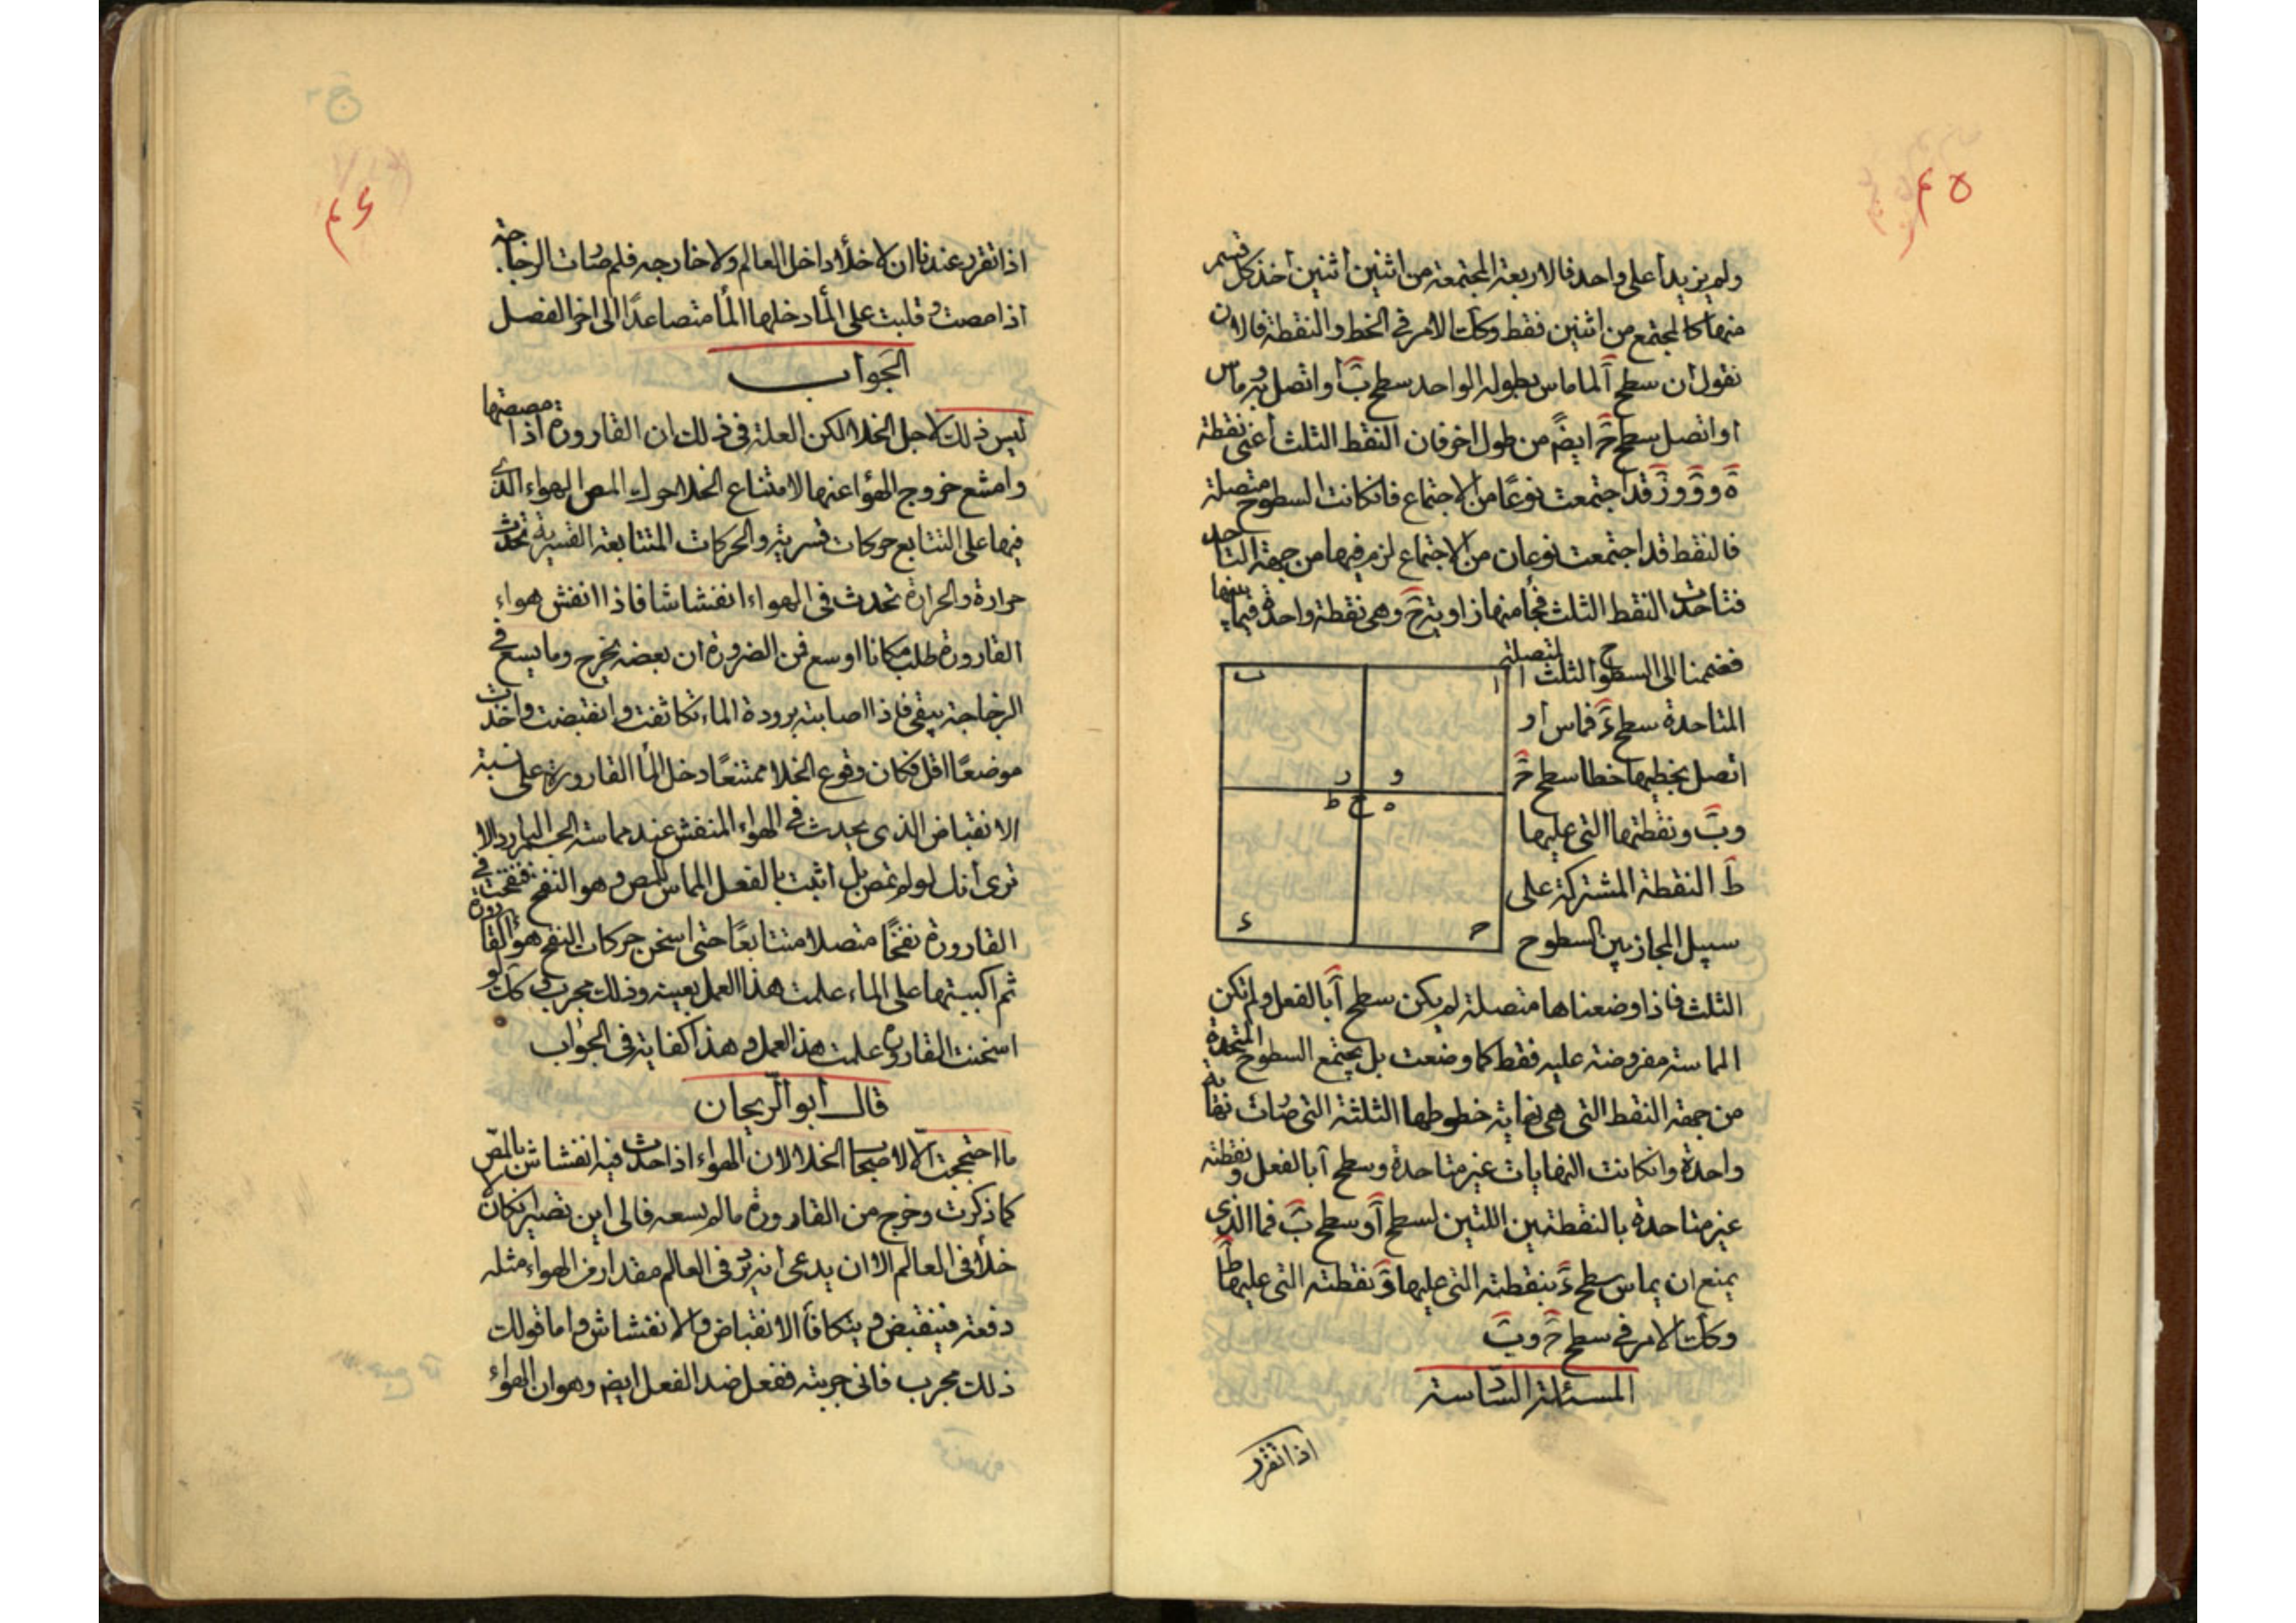 ۴۵
ولم يزيدا على واحد فالاربعة المجتمعة من اثنين اثنين أخذ كل قسم
منها كالمجتمع من اثنين فقط وكك الامر في الخط والنقطة فالان
نقول أن سطح آ لما ماس بطوله الواحد سطح بَ أو اتصل به وماس
او اتصل سطح حَ ايضً من طول اخر فان النقط الثلث أعنى نقطة
هَ ووَ وزَ قد اجتمعت نوعًا من الاجتماع فان كانت السطوح متصلة
فالنقط قد اجتمعت نوعان من الاجتماع لزم فيها من جهة التاحد
فتأحدت النقط الثلث منها زاوية حَ وهى نقطة واحدة فيما بينها
فضممنا الى السطوح الثلث المتصلة
المتاحدة سطح ءَ فماس أو
اتصل بخطيها خطا سطح حَ
وبَ ونقطتها التى عليها
طَ النقطة المشتركة على
سبيل المجاز بين السطوح
ا
ب
و
ر
ه
ح
ط
ح
ء
الثلث فاذا وضعناها متصلة لم يكن سطح آ بالفعل ولم تكن
المماسة مفروضة عليه فقط كما وضعت بل يجتمع السطوح المتحدة
من جهة النقط التى هى نهاية خطوطها الثلثة التى صارت نهاية
واحدة وان كانت النهايات غير متاحدة وسطح آ بالفعل ونقطته
غير متاحدة بالنقطتين اللتين لسطح آ وسطح بَ فما الذى
يمنع ان يماس سطح ءَ بنقطته التى عليها وَ نقطته التى عليها طَ
وكك الامر فى سطح حَ وبَ
المسئلة السادسة
اذا تقرر
۴۶
اذا تقرر عندنا ان لا خلأ داخل العالم ولا خارجه فلم صارت الزجاجة
اذا مصت وقلبت على المأ دخلها المأ متصاعدًا الى اخر الفصل
الجواب
ليس ذلك لاجل الخلا لكن العلة فى ذلك ان القارورة اذا مصصتها
وامتنع خروج الهوٰا عنها لامتناع الخلا حرك المص الهواء الذى
فيها على التتابع حركات قسرية والحركات المتتابعة القسرية تحدث
حرارة والحرارة تحدث فى الهواء انفشاشا فاذا انفش هواء
القارورة طلب مكانا اوسع فمن الضرورة ان بعضه يخرج وما يسع فى
الزجاجة يبقى فاذا اصابته برودة الماء تكاثفت وانقبضت واخذت
موضعًا اقل فكان وقوع الخلا ممتنعًا دخل المأ القارورة على نسبة
الانقباض الذى يحدث فى الهواء المنفش عند مماسة الجسم البارد الا
ترى أنك لو لم تمص بل اتيت بالفعل المماس للمص وهو النفخ فنفخت فى
القارورة نفخًا متصلا متتابعًا حتى اسخن حركات النفخ هوا القارورة
ثم اكببتها على الماء علمت هذا العمل بعينه وذلك مجرب وكك لو
اسخنت القارورة علمت هذ العمل وهذا كفاية فى الجواب
قال أبو الريحان
ما احتججت الا لاصحاب الخلا لان الهواء اذا حدث فيه انفشاش بالمصّ
كما ذكرت وخرج من القارورة ما لم يسعه فالى اين تصير ان كان لا
خلأ فى العالم الا ان يدعى انه يبرد فى العالم مقدار من الهواء مثله
دفعة فينقبض ويتكافأ الانقباض والانفشاش واما قولك
ذلك مجرب فانى جربته ففعل ضد الفعل ايضً وهو ان الهوٰاء